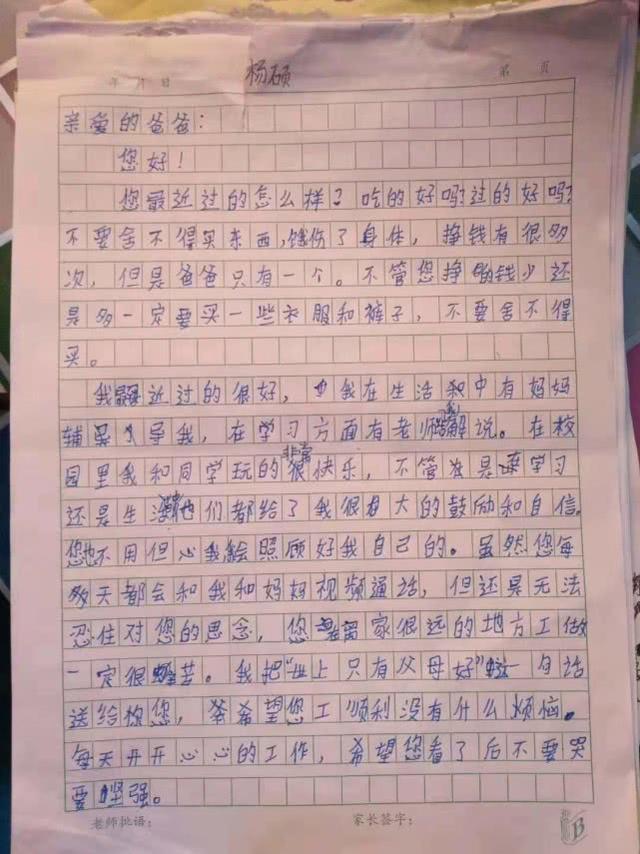 年 月 日 杨硕 第 页
亲爱的爸爸：
您好！
您最近过的怎么样？吃的好吗？过的好吗？
不要舍不得买东西，饿伤了身体，挣钱有很多
次，但是爸爸只有一个。不管您挣的钱少还
是多一定要买一些衣服和裤子，不要舍不得
买。
我最近过的很好，我在生活中有妈妈
辅导我，在学习方面有老师给我解说。在校
园里我和同学玩的非常快乐，不管是学习
还是生活他们都给了我很大的鼓励和自信。
您也不用担心我会照顾好我自己的。虽然您每
天都会和我和妈妈视频通话，但还是无法
忍住对您的思念，您离家很远的地方工做
一定很辛苦。我把“世上只有父母好”这一句话
送给您，希望您工顺利没有什么烦恼。
每天开开心心的工作，希望您看了后不要哭
要坚强。
老师批语： 家长签字：
B